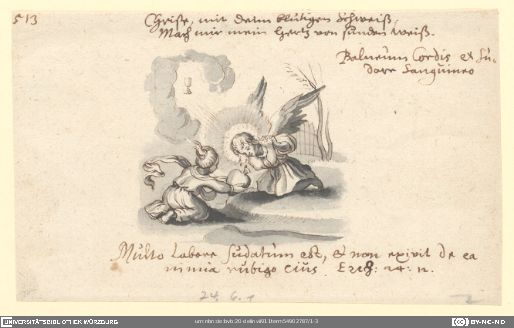 513
Christe, mit deim blutigen Schweiß,
Mach mir mein Hertz von sünden weiß.
Balneum Cordis ex Su-
dore Sanguineo
Multo labore sudatum est, et non exivit de ea
nimia rubigo eius. Ezech: 24: 12.
24. 6. 1
2
UNIVERSITÄTSBIBLIOTHEK WÜRZBURG
urn:nbn:de:bvb:20-delinvi911item54902787/1-3
CC BY-NC-ND